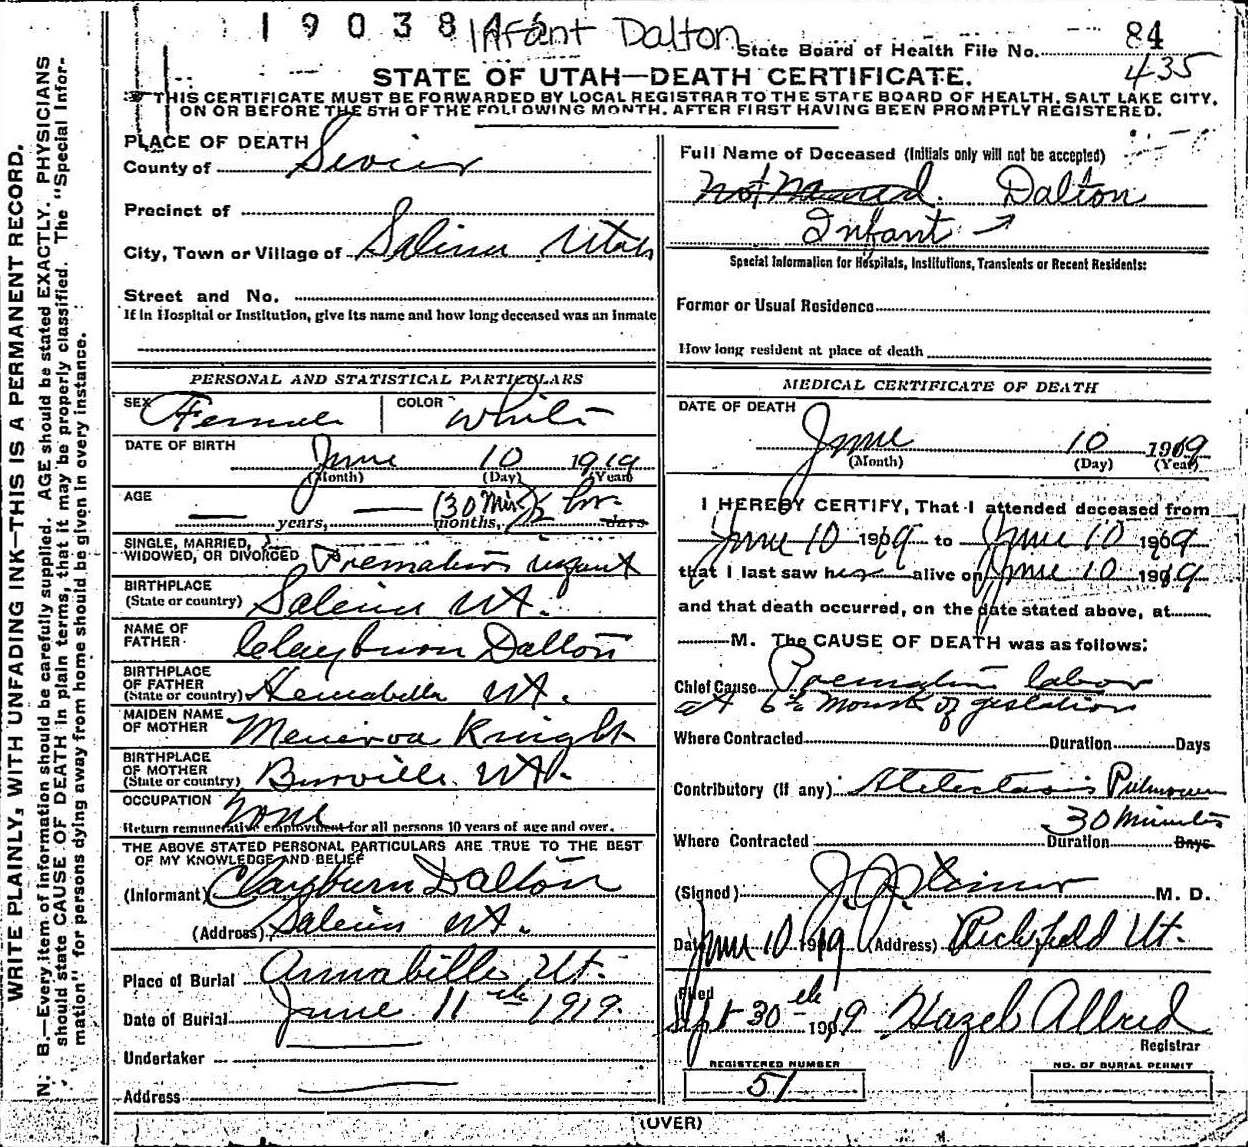 1 9 0 3 8
Infant Dalton
State Board of Health File No. 84
435
STATE OF UTAH—DEATH CERTIFICATE.
THIS CERTIFICATE MUST BE FORWARDED BY LOCAL REGISTRAR TO THE STATE BOARD OF HEALTH, SALT LAKE CITY,
ON OR BEFORE THE 5TH OF THE FOLLOWING MONTH, AFTER FIRST HAVING BEEN PROMPTLY REGISTERED.
WRITE PLAINLY, WITH UNFADING INK—THIS IS A PERMANENT RECORD.
N. B.—Every item of information should be carefully supplied. AGE should be stated EXACTLY. PHYSICIANS
should state CAUSE OF DEATH in plain terms, that it may be properly classified. The "Special Infor-
mation" for persons dying away from home should be given in every instance.
PLACE OF DEATH
County of Sevier
Precinct of
City, Town or Village of Salina Utah
Street and No.
If in Hospital or Institution, give its name and how long deceased was an inmate
PERSONAL AND STATISTICAL PARTICULARS
SEX Female COLOR White
DATE OF BIRTH
June 10 1919
(Month) (Day) (Year)
AGE
— years, — months, (30 Min) ½ hr. days
SINGLE, MARRIED,
WIDOWED, OR DIVORCED Premature infant
BIRTHPLACE
(State or country) Salina Ut.
NAME OF
FATHER Clayburn Dalton
BIRTHPLACE
OF FATHER
(State or country) Annabella Ut.
MAIDEN NAME
OF MOTHER Menerva Knight
BIRTHPLACE
OF MOTHER
(State or country) Burrville Ut.
OCCUPATION None
Return remunerative employment for all persons 10 years of age and over.
THE ABOVE STATED PERSONAL PARTICULARS ARE TRUE TO THE BEST
OF MY KNOWLEDGE AND BELIEF
(Informant) Clayburn Dalton
(Address) Salina Ut.
Place of Burial Annabille Ut.
Date of Burial June 11th 1919.
Undertaker
Address
Full Name of Deceased (Initials only will not be accepted)
Not Named. Dalton
Infant →
Special Information for Hospitals, Institutions, Transients or Recent Residents:
Former or Usual Residence
How long resident at place of death
MEDICAL CERTIFICATE OF DEATH
DATE OF DEATH
June 10 1919
(Month) (Day) (Year)
I HEREBY CERTIFY, That I attended deceased from
June 10 1919 to June 10 1919
that I last saw her alive on June 10 1919
and that death occurred, on the date stated above, at
M. The CAUSE OF DEATH was as follows:
Chief Cause Premature labor
at 6½ Months of gestation
Where Contracted Duration Days
Contributory (if any) Atelectasis Pulmonum
30 Minutes
Where Contracted Duration Days
(Signed) M. D.
Date June 10 1919 (Address) Richfield Ut.
Filed
Sept 30th 1919 Hazel Allred
Registrar
REGISTERED NUMBER
51
NO. OF BURIAL PERMIT
(OVER)